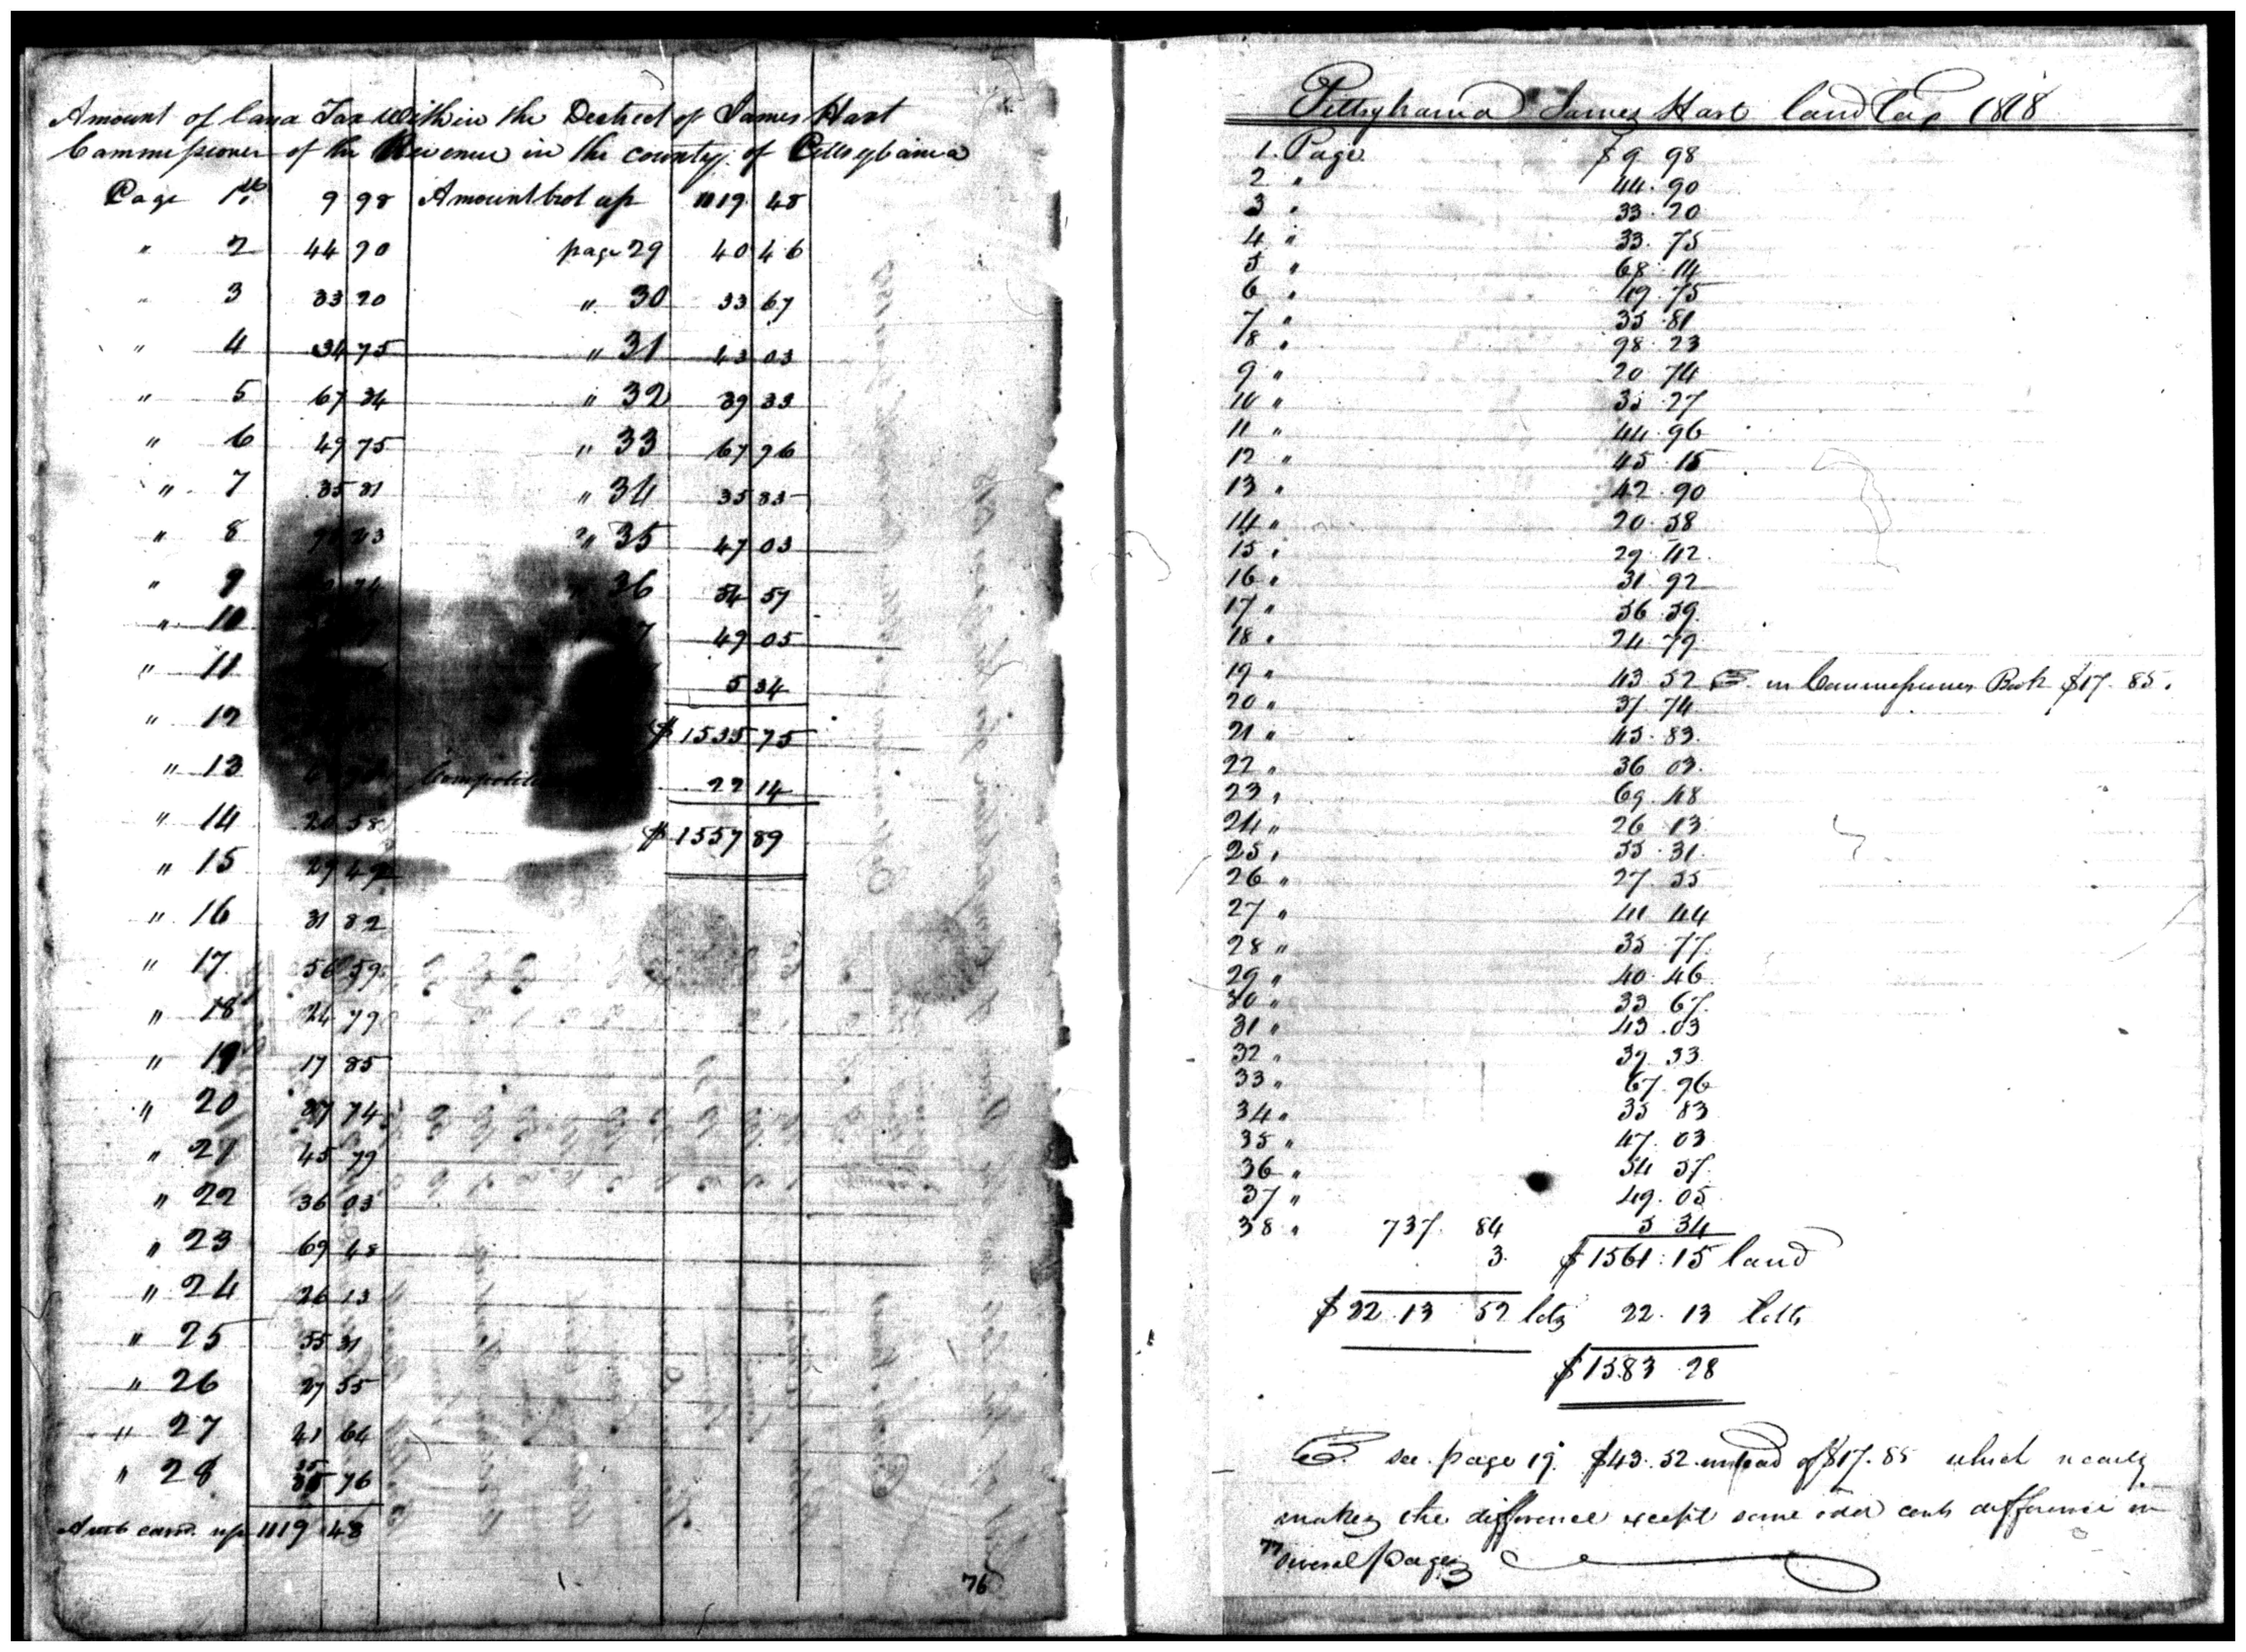 Amount of land Tax Within the Destrect of James Hart
Commessioner of the Revenue in the county of Pittsylvania
Page 1st 9 98 Amount brot up 1119 48
" 2 44 90 page 29 40 46
" 3 33 20 " 30 33 67
" 4 34 75 " 31 43 03
" 5 67 34 " 32 39 33
" 6 49 75 " 33 67 96
" 7 35 81 " 34 35 83
" 8 98 23 " 35 47 03
" 9 74 " 36 54 57
" 10 7 49 05
" 11 5 34
" 12 $ 1535 75
" 13 22 14
" 14 20 58 $ 1557 89
" 15 29 42
" 16 31 82
" 17 56 59
" 18 24 79
" 19 17 85
" 20 37 74
" 21 45 79
" 22 36 03
" 23 69 48
" 24 26 13
" 25 55 31
" 26 27 55
" 27 41 64
" 28 35 76
Amt card. up 1119 48
76
Pittsylvania James Hart land Tax 1818
1. Page $ 9 98
2 " 44. 90
3 " 33. 20
4 " 33. 75
5 " 68. 14
6 " 49. 75
7 " 35. 81
8 " 98. 23
9 " 20 74
10 " 35. 27
11 " 44. 96
12 " 45. 15
13 " 42. 90
14 " 20. 58
15 " 29. 42
16 " 31. 92
17 " 56. 59
18 " 24. 79
19 " 43 52 in Commessiones Book $17. 85.
20 " 37 74
21 " 45. 83
22 " 36 03
23 " 69. 48
24 " 26 13
25 " 55. 31
26 " 27 55
27 " 41 44
28 " 35. 77
29 " 40. 46
30 " 33 67
31 " 43. 03
32 " 39. 33
33 " 67. 96
34 " 35 83
35 " 47. 03
36 " 54 57
37 " 49. 05
38 " 737. 84 5 34
3. $ 1561. 15 land
$ 22. 13 52 lots 22. 13 lotts
$ 1583. 28
see page 19. $43. 52. instead of $17. 85 which nearly
makes the difference except some odd cents difference in
several pages